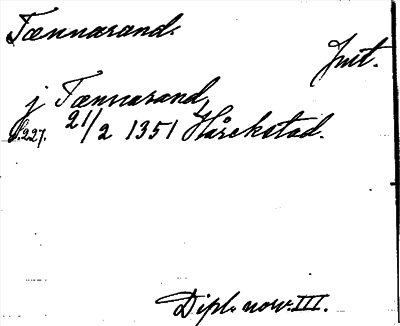 Tænnarand.
Just.
j Tænnarand,
S.227. 21/2 1351 Hårekstad.
Dipl. norv. III.